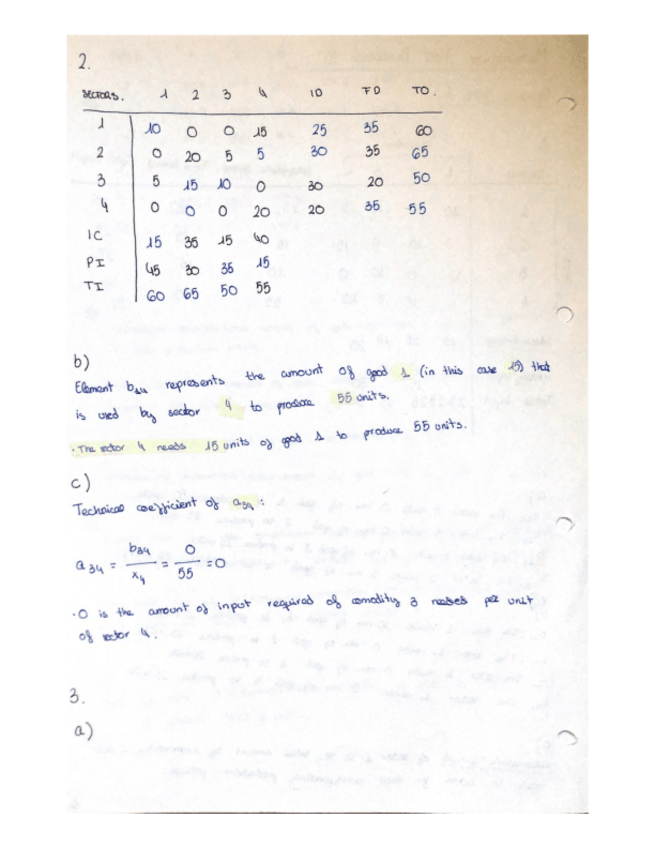 2.
SECTORS. 1 2 3 4 ID FD TO.
1 10 0 0 15 25 35 60
2 0 20 5 5 30 35 65
3 5 15 10 0 30 20 50
4 0 0 0 20 20 35 55
IC 15 35 15 40
PI 45 30 35 15
TI 60 65 50 55
b)
Element b14 represents the amount of good 1 (in this case 15) that
is used by sector 4 to produce 55 units.
· The sector 4 needs 15 units of good 1 to produce 55 units.
c)
Technical coefficient of a34:
a34 = b34 / x4 = 0 / 55 = 0
· 0 is the amount of input required of comodity 3 per unit
of sector 4.
3.
a)